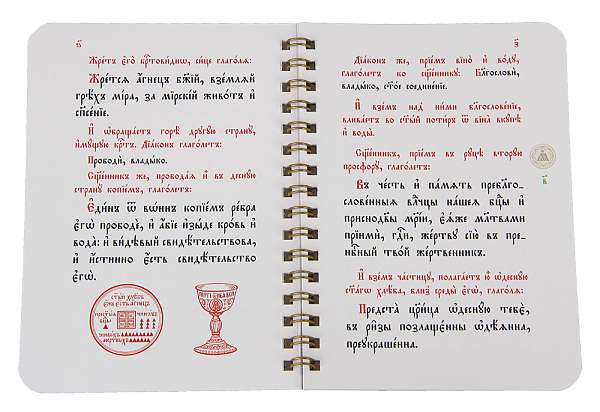 Жре́тъ є҆го̀ крⷭ҇тови́днѡ, си́це глаго́лѧ:
Жре́тсѧ а҆́гнецъ бж҃їй, взе́млѧй
грѣ́хъ мі́ра, за мїрскі́й живо́тъ и҆
сп҃се́нїе.
И҆ ѡ҆браща́етъ горѣ̀ дрꙋгꙋ́ю странꙋ̀,
и҆мꙋ́щꙋю крⷭ҇тъ. Дїа́конъ глаго́летъ:
Прободѝ, влады́ко.
Сщ҃е́нникъ же, пробода́ѧ и҆̀ въ деснꙋ́ю
странꙋ̀ копїе́мъ, глаго́летъ:
Є҆ди́нъ ѿ вѡ́инъ копїе́мъ ре́бра
є҆гѡ̀ прободѐ, и҆ а҆́бїе и҆зы́де кро́вь и҆
вода̀: и҆ ви́дѣвый свидѣ́тельствова,
и҆ и҆́стинно є҆́сть свидѣ́тельство
є҆гѡ̀.
ст҃ы́й хлѣ́бъ
є҆́же є҆́сть а҆́гнецъ
пречⷭ҇тыѧ
бцⷣы
чи́нѡвъ
живы́хъ
ме́ртвыхъ
Дїа́конъ же, прїе́мъ вїно̀ и҆ во́дꙋ,
глаго́летъ ко сщ҃е́нникꙋ: Благословѝ,
влады́ко, ст҃о́е соедине́нїе.
И҆ взе́мъ над̾ ни́ми благослове́нїе,
влива́етъ во ст҃ы́й поти́ръ ѿ вїна̀ вкꙋ́пѣ
и҆ воды̀.
Сщ҃е́нникъ, прїе́мъ въ рꙋ́цѣ вторꙋ́ю
просфорꙋ̀, глаго́летъ:
Въ че́сть и҆ па́мѧть пребл҃го-
слове́нныѧ влⷣчцы на́шеѧ бцⷣы и҆
приснодв҃ы мр҃і́и, є҆ѧ́же мл҃твами
прїимѝ, гдⷭ҇и, же́ртвꙋ сїю̀ въ пре-
нбⷭ҇ный тво́й же́ртвенникъ.
И҆ взе́мъ части́цꙋ, полага́етъ ю҆̀ ѡ҆деснꙋ́ю
ст҃а́гѡ хлѣ́ба, бли́з̾ среды̀ є҆гѡ̀, глаго́лѧ:
Предста̀ цр҃и́ца ѡ҆деснꙋ́ю тебє̀,
въ ри́зы позлаще́нны ѡ҆дѣ́ѧнна,
преꙋкра́шенна.